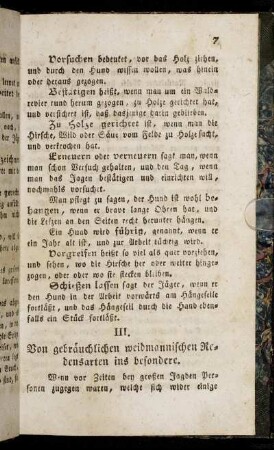 7
Vorsuchen bedeutet, vor das Holz ziehen,
und durch den Hund wissen wollen, was hinein
oder heraus gezogen.
Bestätigen heißt, wenn man um ein Wald-
revier rund herum gezogen, zu Holze gerichtet hat,
und versichert ist, daß dasjenige darin geblieben.
Zu Holze gerichtet ist, wenn man die
Hirsche, Wild oder Säue vom Felde zu Holze sucht,
und verbrochen hat.
Erneuern oder verneuern sagt man, wenn
man schon Versuch gehalten, und den Tag, wenn
man das Jagen bestätigen und einrichten will,
nochmahls vorsuchet.
Man pflegt zu sagen, der Hund ist wohl be-
hangen, wenn er brave lange Ohren hat, und
die Lefzen an den Seiten recht herunter hängen.
Ein Hund wird führig, genannt, wenn er
ein Jahr alt ist, und zur Arbeit tüchtig wird.
Vorgreifen heißt so viel als quer vorziehen,
und sehen, wo die Hirsche her oder weiter hinge-
zogen, oder ob wo sie stecken bleiben.
Schießen lassen sagt der Jäger, wenn er
den Hund in der Arbeit vorwärts am Hängeseile
fortläßt, und das Hängseil durch die Hand eben-
falls ein Stück fortläßt.
III.
Von gebräuchlichen weidmannischen Re-
densarten ins besondere.
Wenn vor Zeiten bey großen Jagden Per-
sonen zugegen waren, welche sich wider einige